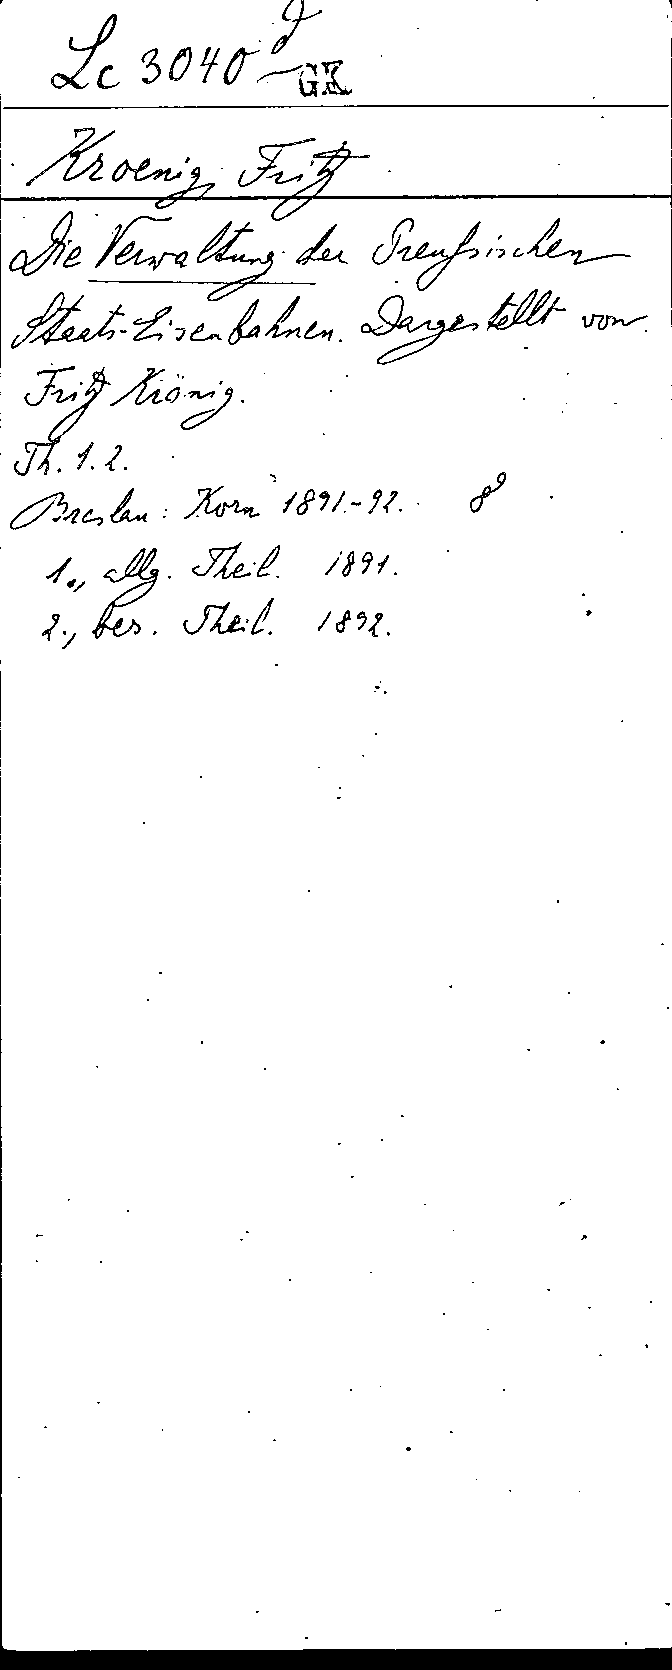 Lc 3040 d GK
Kroenig, Fritz
Die Verwaltung der Preußischen
Staats-Eisenbahnen. Dargestellt von
Fritz Krönig.
Th. 1. 2.
Breslau: Korn 1891-92. 8°
1., allg. Theil. 1891.
2., bes. Theil. 1892.